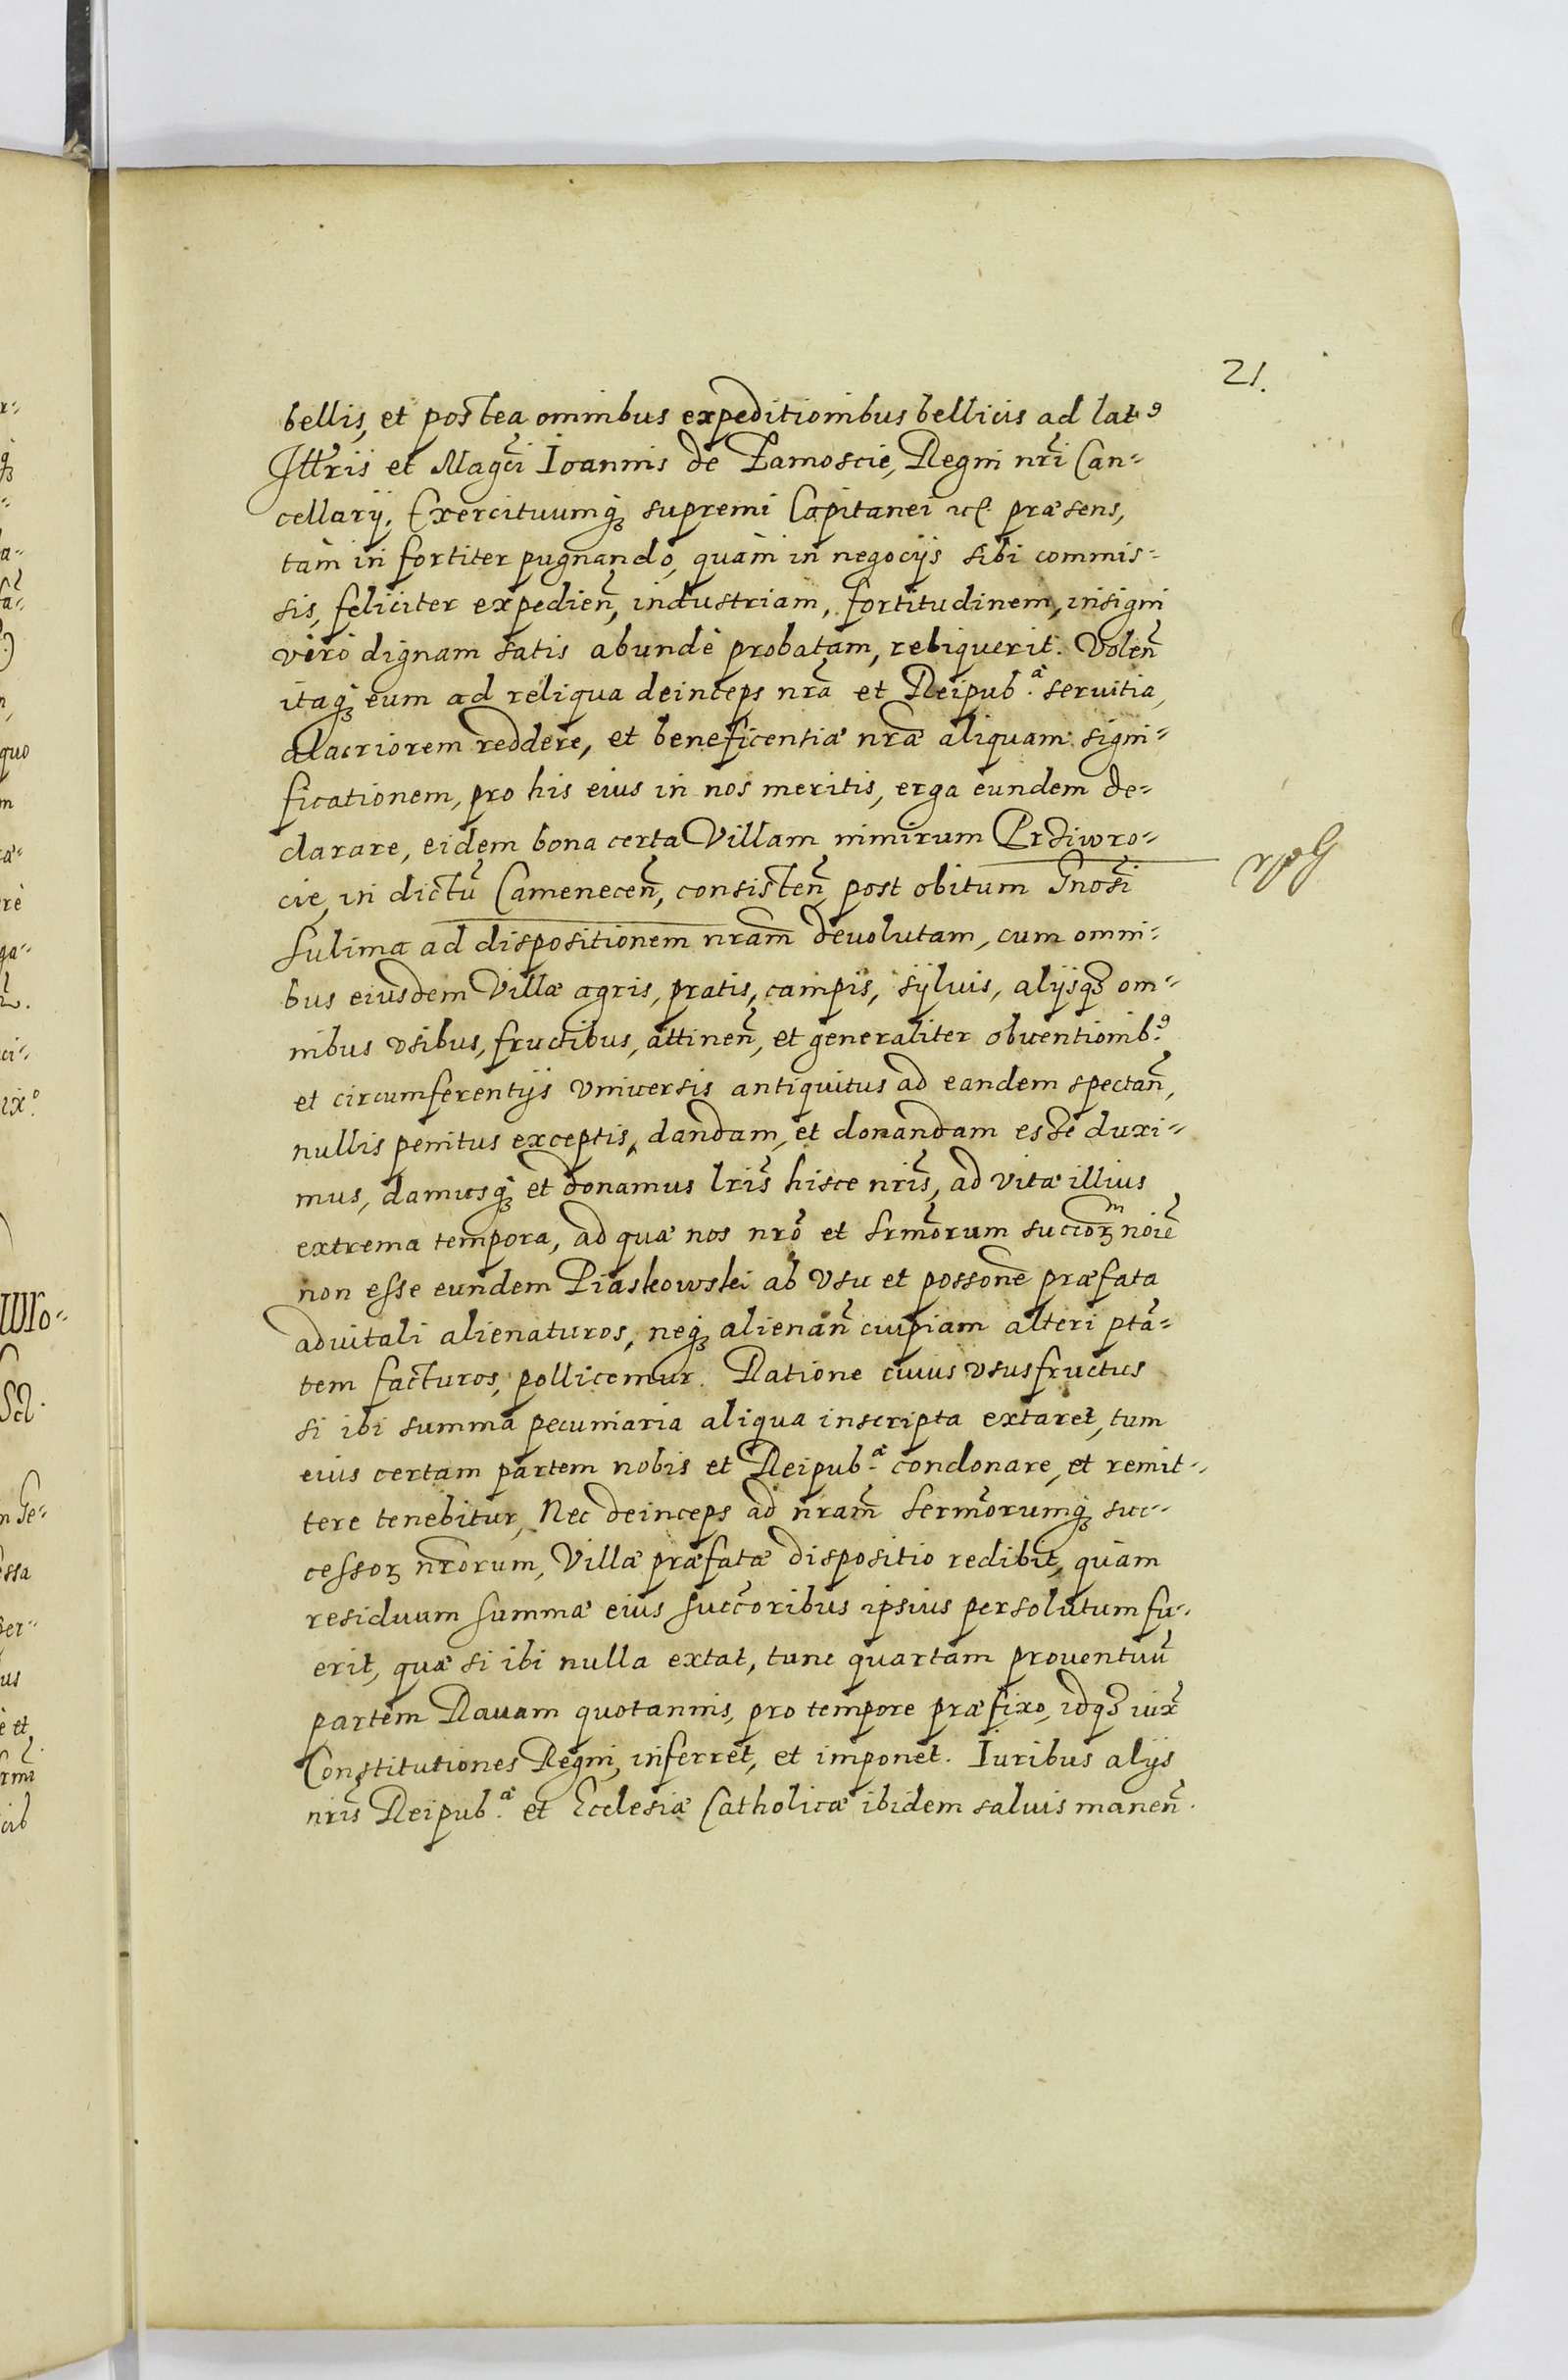 21.
bellis, et postea omnibus expeditionibus bellicis ad lat9
Illris et Magci Ioannis de Zamoscie, Regni nri Can=
cellarij, Exercituumq3 supremi Capitanei præsens,
tàm in fortiter pugnando, quàm in negocijs sibi commis=
sis, feliciter expedien̄, industriam, fortitudinem, insigni
viro dignam satis abundè probatam, reliquerit. Volen̄
itaq3 eum ad reliqua deinceps nrā et Reipub.æ seruitia,
alacriorem reddere, et beneficentiæ nræ aliquam signi=
ficationem, pro his eius in nos meritis, erga eundem de=
clarare, eidem bona certa Villam nimirum Prziwro=
cie, in dictū Camenecen̄, consisten̄, post obitum Gnosi
Sulima ad dispositionem nram̄ deuolutam, cum omni=
bus eiusdem Villæ agris, pratis, campis, syluis, alijsq3 om=
nibus vsibus, fructibus, attinen̄, et generaliter obuentionib.9
et circumferentijs vniuersis antiquitus ad eandem spectan̄,
nullis penitus exceptis, dandam, et donandam esse duxi=
mus, damusq3 et donamus lris̄ hisce nris̄, ad vitæ illius
extrema tempora, ad quæ nos nrō et srmōrum succorz m noiē
non esse eundem Piaskowski ab vsu et possone præfata
aduitali alienaturos, neq3 alienan̄ cuipiam alteri ptā=
tem facturos, pollicemur. Ratione cuius vsusfructus
si ibi summa pecuniaria aliqua inscripta extaret, tum
eius certam partem nobis et Reipub.æ condonare, et remit=
tere tenebitur, Nec deinceps ad nram̄ sermōrumq3 suc=
cessorz nrorum, Villæ præfatæ dispositio redibit, quàm
residuum summæ eius succoribus ipsius persolutum fu=
erit, quæ si ibi nulla extat, tunc quartam prouentuū
partem Rauam quotannis, pro tempore præfixo, idq3 iux̄
Constitutiones Regni, inferret, et imponet. Iuribus alijs
nris̄ Reipub.æ et Ecclesiæ Catholicæ ibidem saluis manen̄.